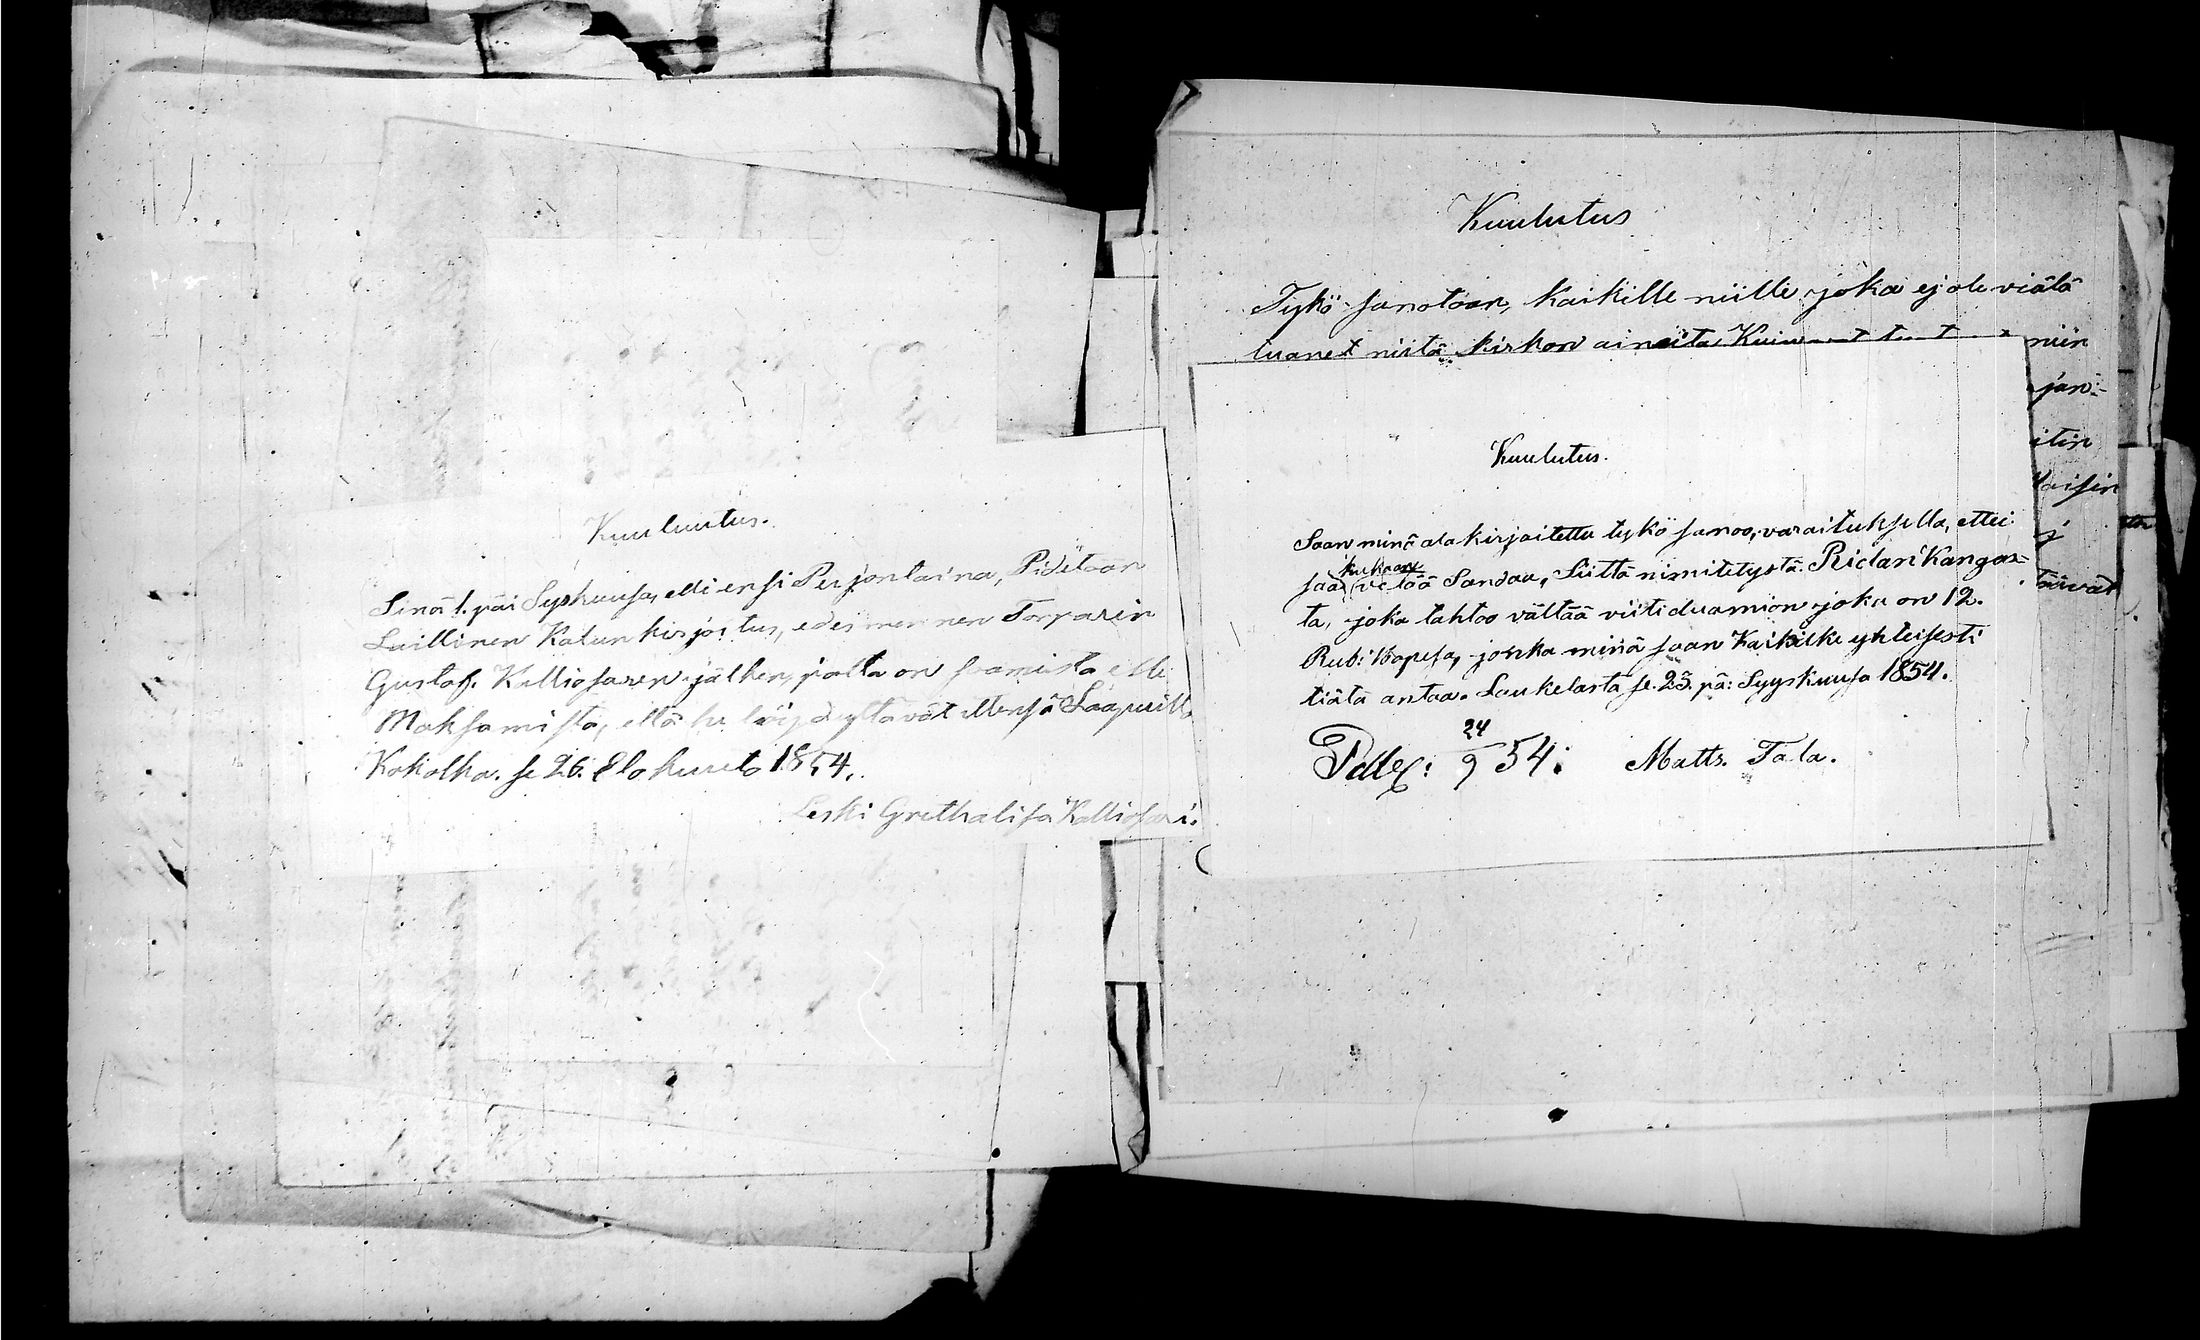 Kuuluutus.
Sinä 1. päi Syskuusa, elli ensi Perjontaina, Pidetään
Laillinen Kalunkirjoitus, edesmennen Torparin
Gustaf. Kalliosaren jälken, jolla on saamista elli
Maksamista, että he
Kokolka. se 26. Elokuuta 1854.
Leski Grethalisa Kalliosari.
Kuulutus
Tykö-sanotaan, kaikille niille joka ej ole vielä
tuanet niitä kirkon aineita
niin
jan:
itin
aisin
j
täävät
Kuulutus.
Saan minä ala kirjaitettu tykö sanoo, varaituksella, ettei
kukaan
saa vetää Sandaa, Siittä nimitetystä. Ridari Kangas-
ta, joka tahtoo välttää viiti duamion joka on 12.
Rub: Hopesa, jonka minä saan Kaikilke yhteisesti
tiätä antaa. Laukelasta se. 23. pä: Syyskuusa 1854.
24/9 54: Matts. Tala.